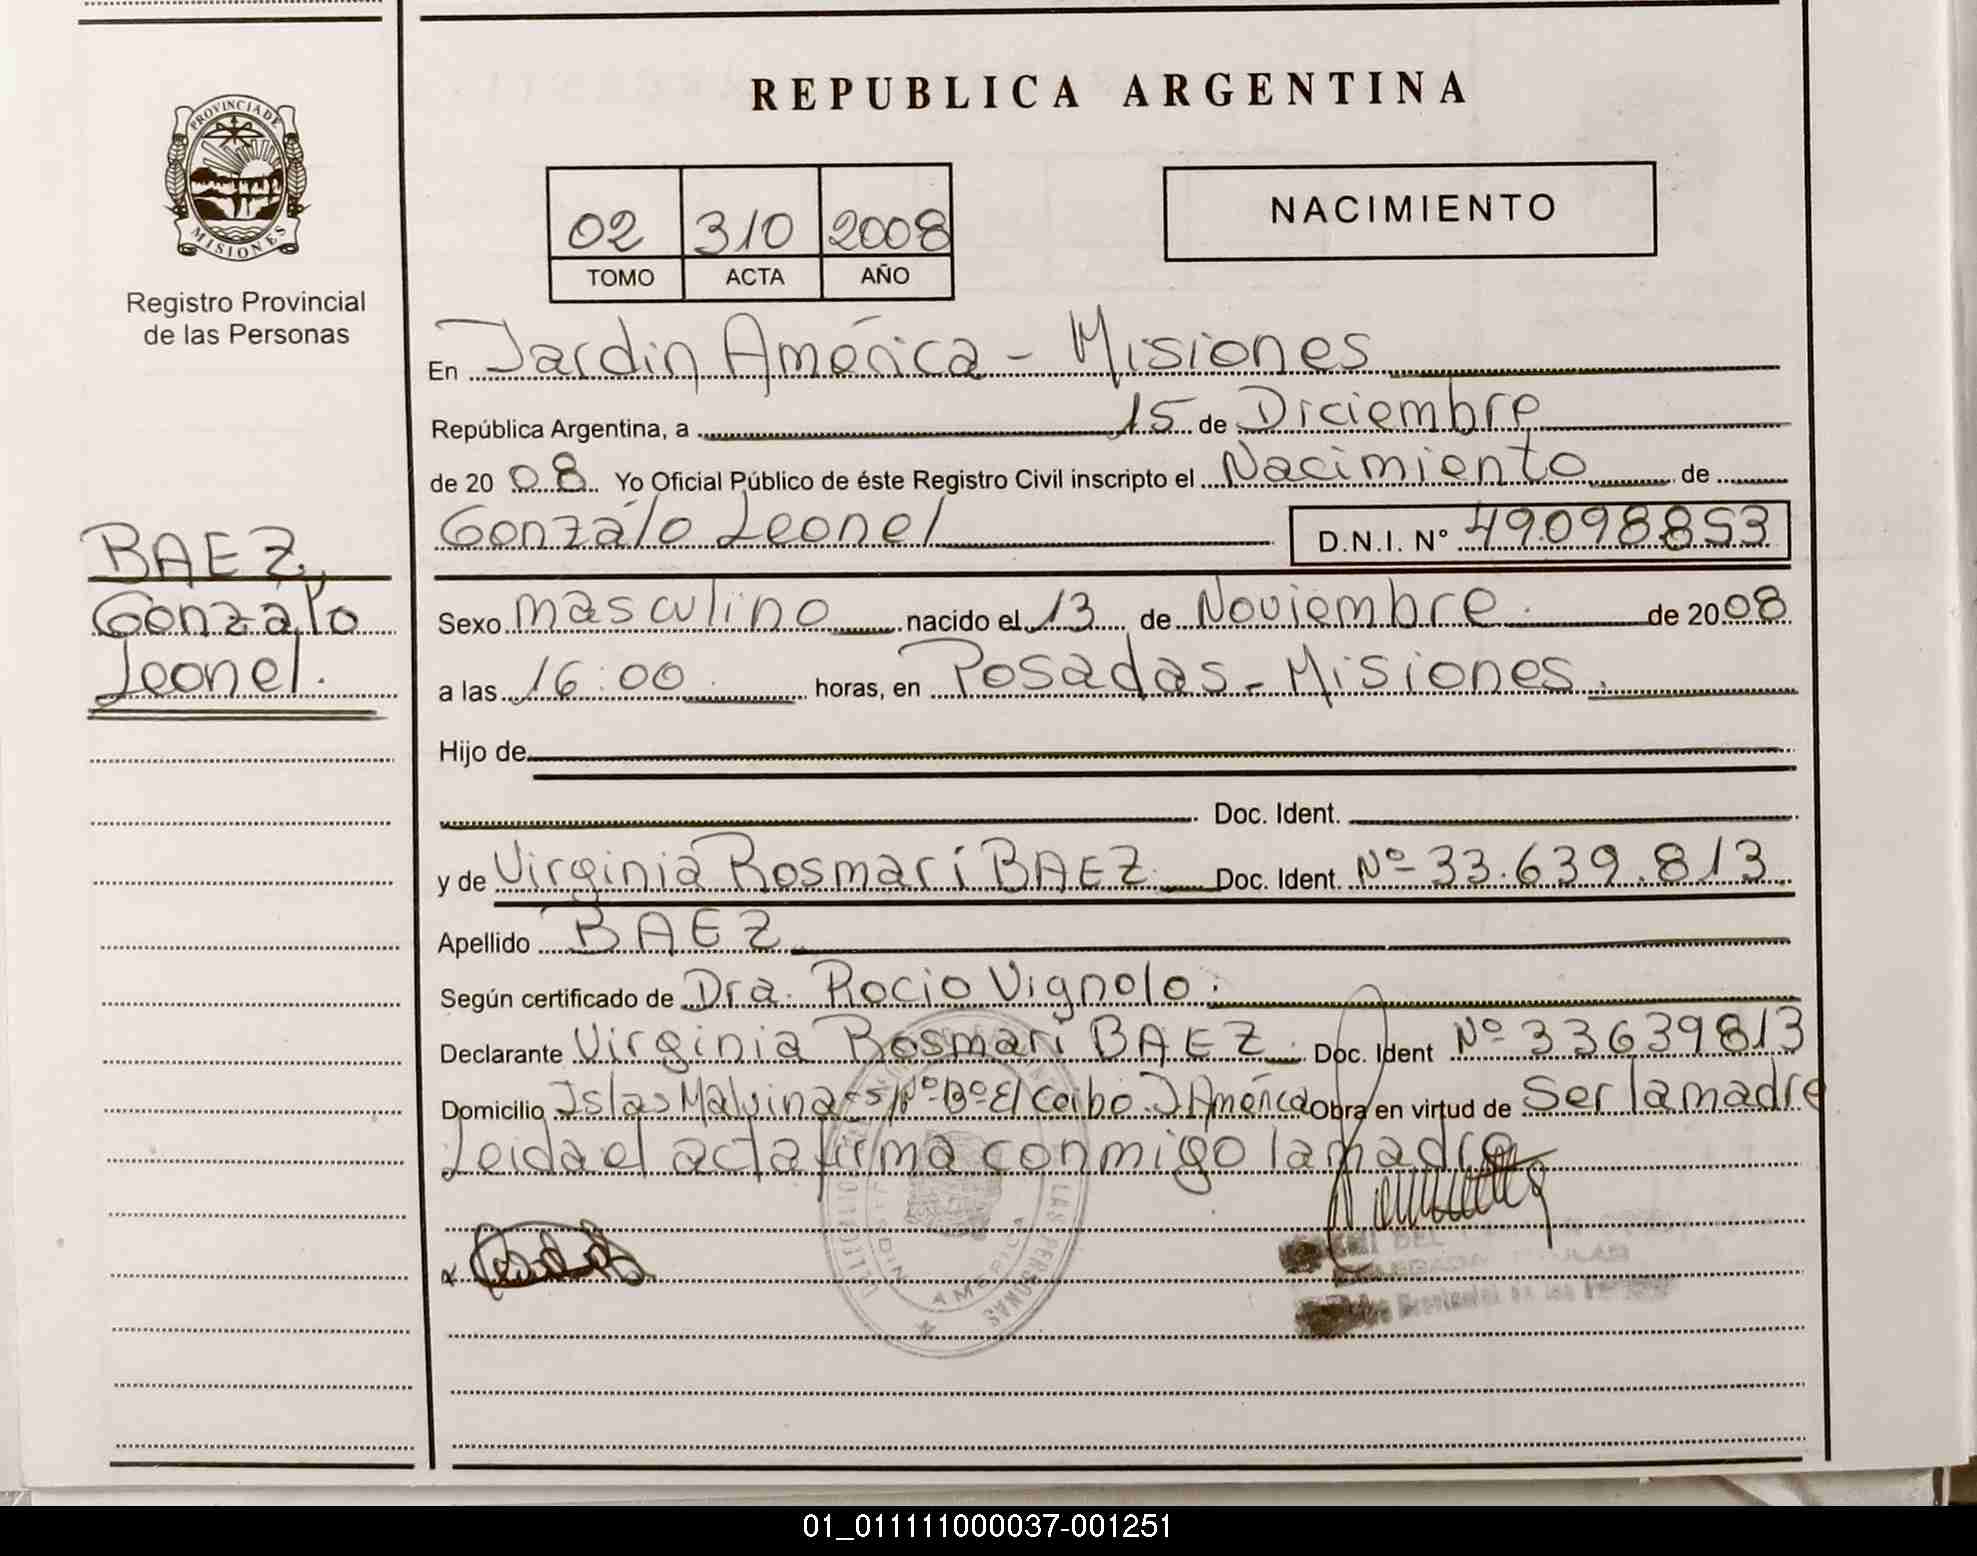 REPUBLICA ARGENTINA
PROVINCIA DE
MISIONES
Registro Provincial
de las Personas
NACIMIENTO
02 310 2008
TOMO ACTA AÑO
En Jardín América - Misiones
República Argentina, a 15 de Diciembre
de 2008 Yo Oficial Público de éste Registro Civil inscripto el Nacimiento de
Gonzalo Leonel D.N.I. N° 49098853
BAEZ,
Gonzalo
Leonel.
Sexo masculino nacido el 13 de Noviembre. de 2008
a las 16:00. horas, en Posadas - Misiones.
Hijo de
Doc. Ident.
y de Virginia Rosmarí BAEZ. Doc. Ident. Nº 33.639.813
Apellido BAEZ
Según certificado de Dra. Rocio Vignolo.
Declarante Virginia Rosmarí BAEZ. Doc. Ident Nº 33639813
Domicilio Islas Malvinas S/Nº Bº El Ceibo J América Obra en virtud de Ser la madre
Leida el acta firma conmigo la madre
LAS PERSONAS
AMERICA
01_011111000037-001251